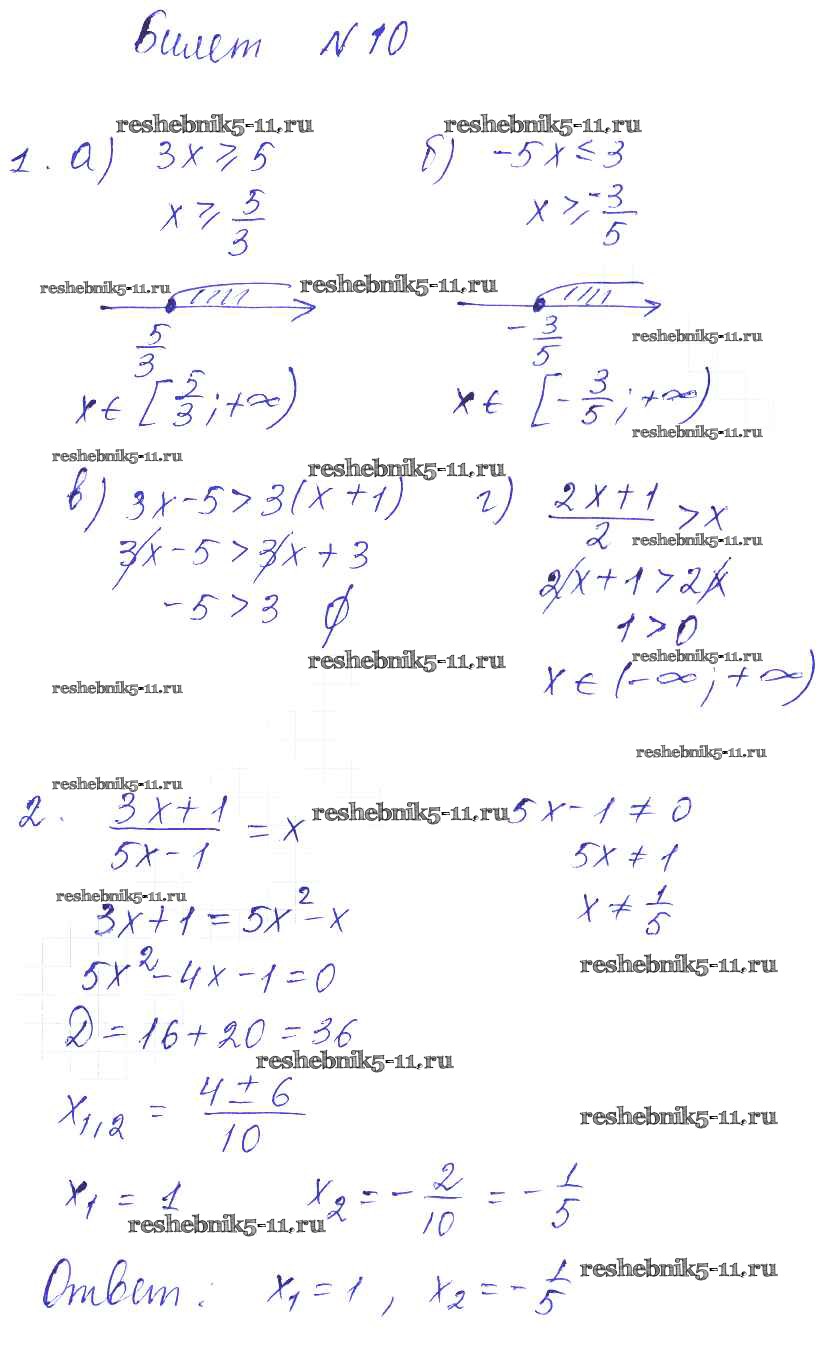 Билет №10
reshebnik5-11.ru reshebnik5-11.ru
1. а) 3x ⩾ 5 б) -5x ≤ 3
x ⩾ 5/3 x ⩾ -3/5
reshebnik5-11.ru reshebnik5-11.ru
5/3 -3/5 reshebnik5-11.ru
x ∈ [5/3; +∞) x ∈ [-3/5; +∞)
reshebnik5-11.ru
reshebnik5-11.ru reshebnik5-11.ru
в) 3x - 5 > 3(x + 1) г) (2x+1)/2 > x
reshebnik5-11.ru
3x - 5 > 3x + 3 2x + 1 > 2x
-5 > 3 ∅ 1 > 0
reshebnik5-11.ru reshebnik5-11.ru
x ∈ (-∞; +∞)
reshebnik5-11.ru
reshebnik5-11.ru
reshebnik5-11.ru
2. (3x+1)/(5x-1) = x reshebnik5-11.ru 5x - 1 ≠ 0
5x ≠ 1
reshebnik5-11.ru
3x + 1 = 5x² - x x ≠ 1/5
reshebnik5-11.ru
5x² - 4x - 1 = 0
D = 16 + 20 = 36
reshebnik5-11.ru
x₁,₂ = (4 ± 6)/10 reshebnik5-11.ru
x₁ = 1 x₂ = -2/10 = -1/5
reshebnik5-11.ru
reshebnik5-11.ru
Ответ: x₁ = 1, x₂ = -1/5